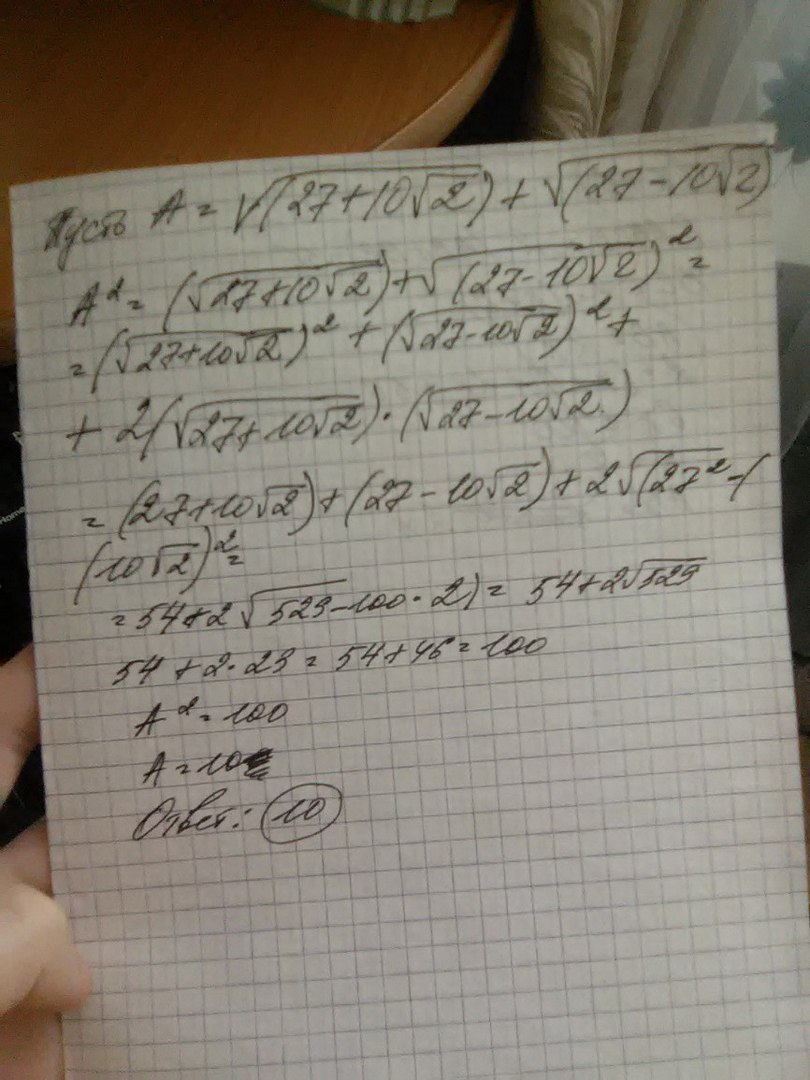 Пусть A = √(27+10√2) + √(27-10√2)
A² = (√27+10√2) + √(27-10√2)² =
= (√27+10√2)² + (√27-10√2)² +
+ 2(√27+10√2)·(√27-10√2)
= (27+10√2) + (27-10√2) + 2√(27²-(
(10√2)² =
= 54+2√529-100·2) = 54+2√529
54+2·23 = 54+46 = 100
A² = 100
A = 10
Ответ: 10
Home